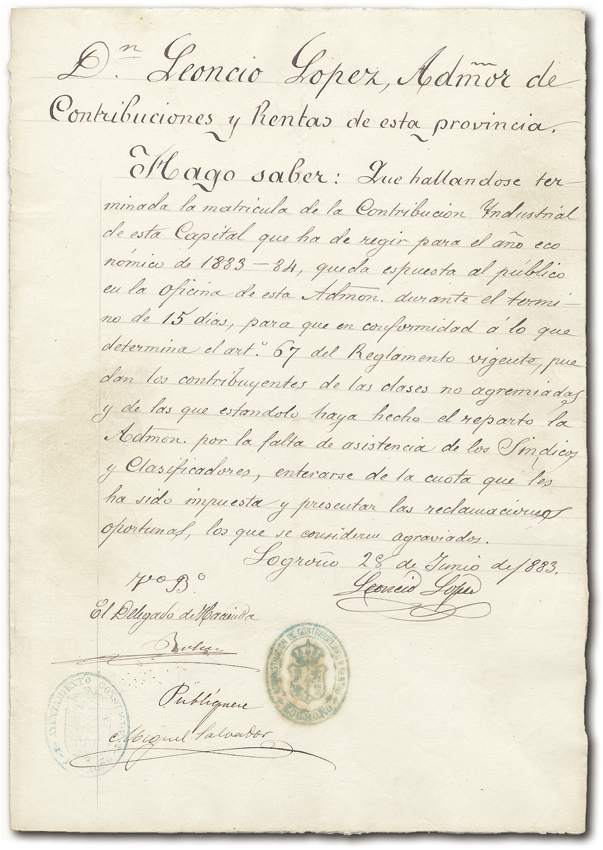 D.n Leoncio Lopez, Admõr de
Contribuciones y Rentas de esta provincia.
Hago saber: Que hallandose ter-
minada la matricula de la Contribución Yndustrial
de esta Capital que ha de regir para el año eco
nómico de 1883-84, queda espuesta al público
en la oficina de esta Admon. durante el termi-
no de 15 dias, para que en conformidad á lo que
determina el art.º 67 del Reglamento vigente, pue
dan los contribuyentes de las clases no agremiadas
y de las que estandolo haya hecho el reparto la
Admon. por la falta de asistencia de los Sindicos
y Clasificadores, enterarse de la cuota que les
ha sido impuesta y presentar las reclamaciones
oportunas, los que se consideren agraviados.
Logroño 28 de Junio de 1883.
Vº Bº
Leoncio Lopez
El Delegado de Hacienda
ADMINISTRACION DE CONTRIBUCIONES Y RENTAS
LOGROÑO
Publíquese
AYUNTAMIENTO
Miguel Salvador